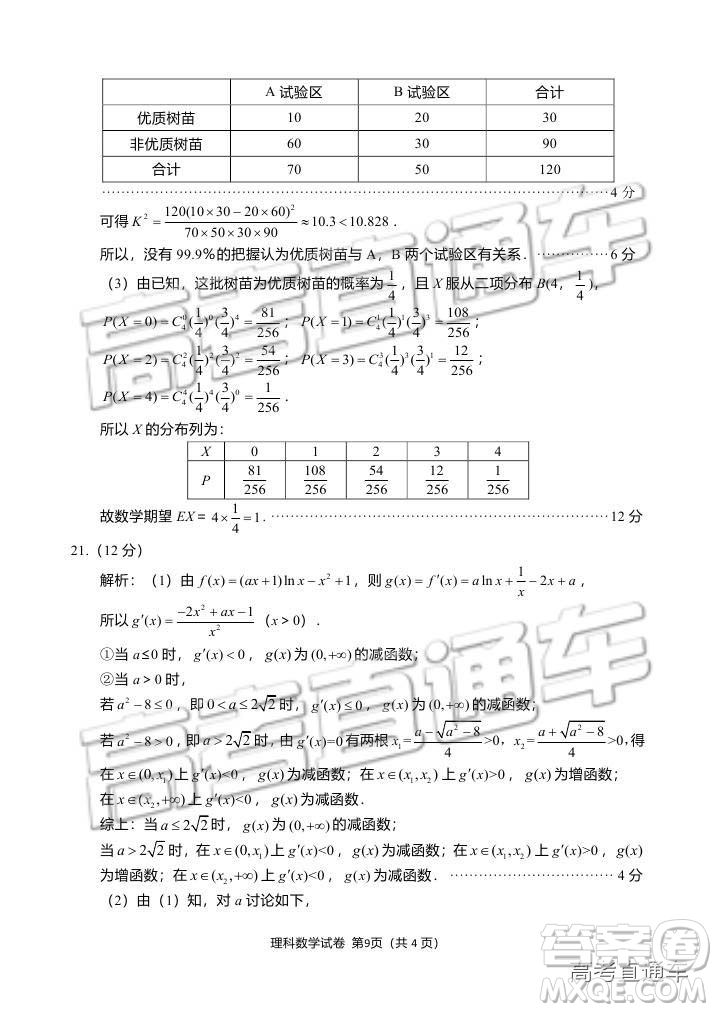 A 试验区 B 试验区 合计
优质树苗 10 20 30
非优质树苗 60 30 90
合计 70 50 120
························4 分
可得 K² = 120(10×30−20×60)² / 70×50×30×90 ≈ 10.3 < 10.828 .
所以，没有 99.9%的把握认为优质树苗与 A，B 两个试验区有关系. ···············6 分
（3）由已知，这批树苗为优质树苗的概率为 1/4，且 X 服从二项分布 B(4， 1/4 )，
P(X = 0) = C₄⁰(1/4)⁰(3/4)⁴ = 81/256； P(X = 1) = C₄¹(1/4)¹(3/4)³ = 108/256；
P(X = 2) = C₄²(1/4)²(3/4)² = 54/256； P(X = 3) = C₄³(1/4)³(3/4)¹ = 12/256；
P(X = 4) = C₄⁴(1/4)⁴(3/4)⁰ = 1/256 .
所以 X 的分布列为：
X 0 1 2 3 4
P 81/256 108/256 54/256 12/256 1/256
故数学期望 EX = 4×1/4=1 . ························12 分
21.（12 分）
解析：（1）由 f(x) = (ax+1)ln x − x² +1，则 g(x) = f′(x) = a ln x + 1/x − 2x + a，
所以 g′(x) = −2x² + ax −1 / x²（x > 0）.
①当 a≤0 时， g′(x) < 0， g(x) 为 (0,+∞) 的减函数；
②当 a > 0 时，
若 a² −8 ≤ 0，即 0 < a ≤ 2√2 时， g′(x) ≤ 0， g(x) 为 (0,+∞) 的减函数；
若 a² −8 > 0，即 a > 2√2 时，由 g′(x)=0 有两根 x₁= a−√(a²−8) / 4 >0，x₂= a+√(a²−8) / 4 >0，得
在 x∈(0,x₁) 上 g′(x)<0， g(x) 为减函数；在 x∈(x₁,x₂) 上 g′(x)>0， g(x) 为增函数；
在 x∈(x₂,+∞) 上 g′(x)<0， g(x) 为减函数.
综上：当 a ≤ 2√2 时， g(x) 为 (0,+∞) 的减函数；
当 a > 2√2 时，在 x∈(0,x₁) 上 g′(x)<0， g(x) 为减函数；在 x∈(x₁,x₂) 上 g′(x)>0， g(x)
为增函数；在 x∈(x₂,+∞) 上 g′(x)<0， g(x) 为减函数. ························ 4 分
（2）由（1）知，对 a 讨论如下，
理科数学试卷 第9页（共 4 页）
高考直通车
高考直通车
高考直通车
答案圈
高考直通车
MXQE.COM